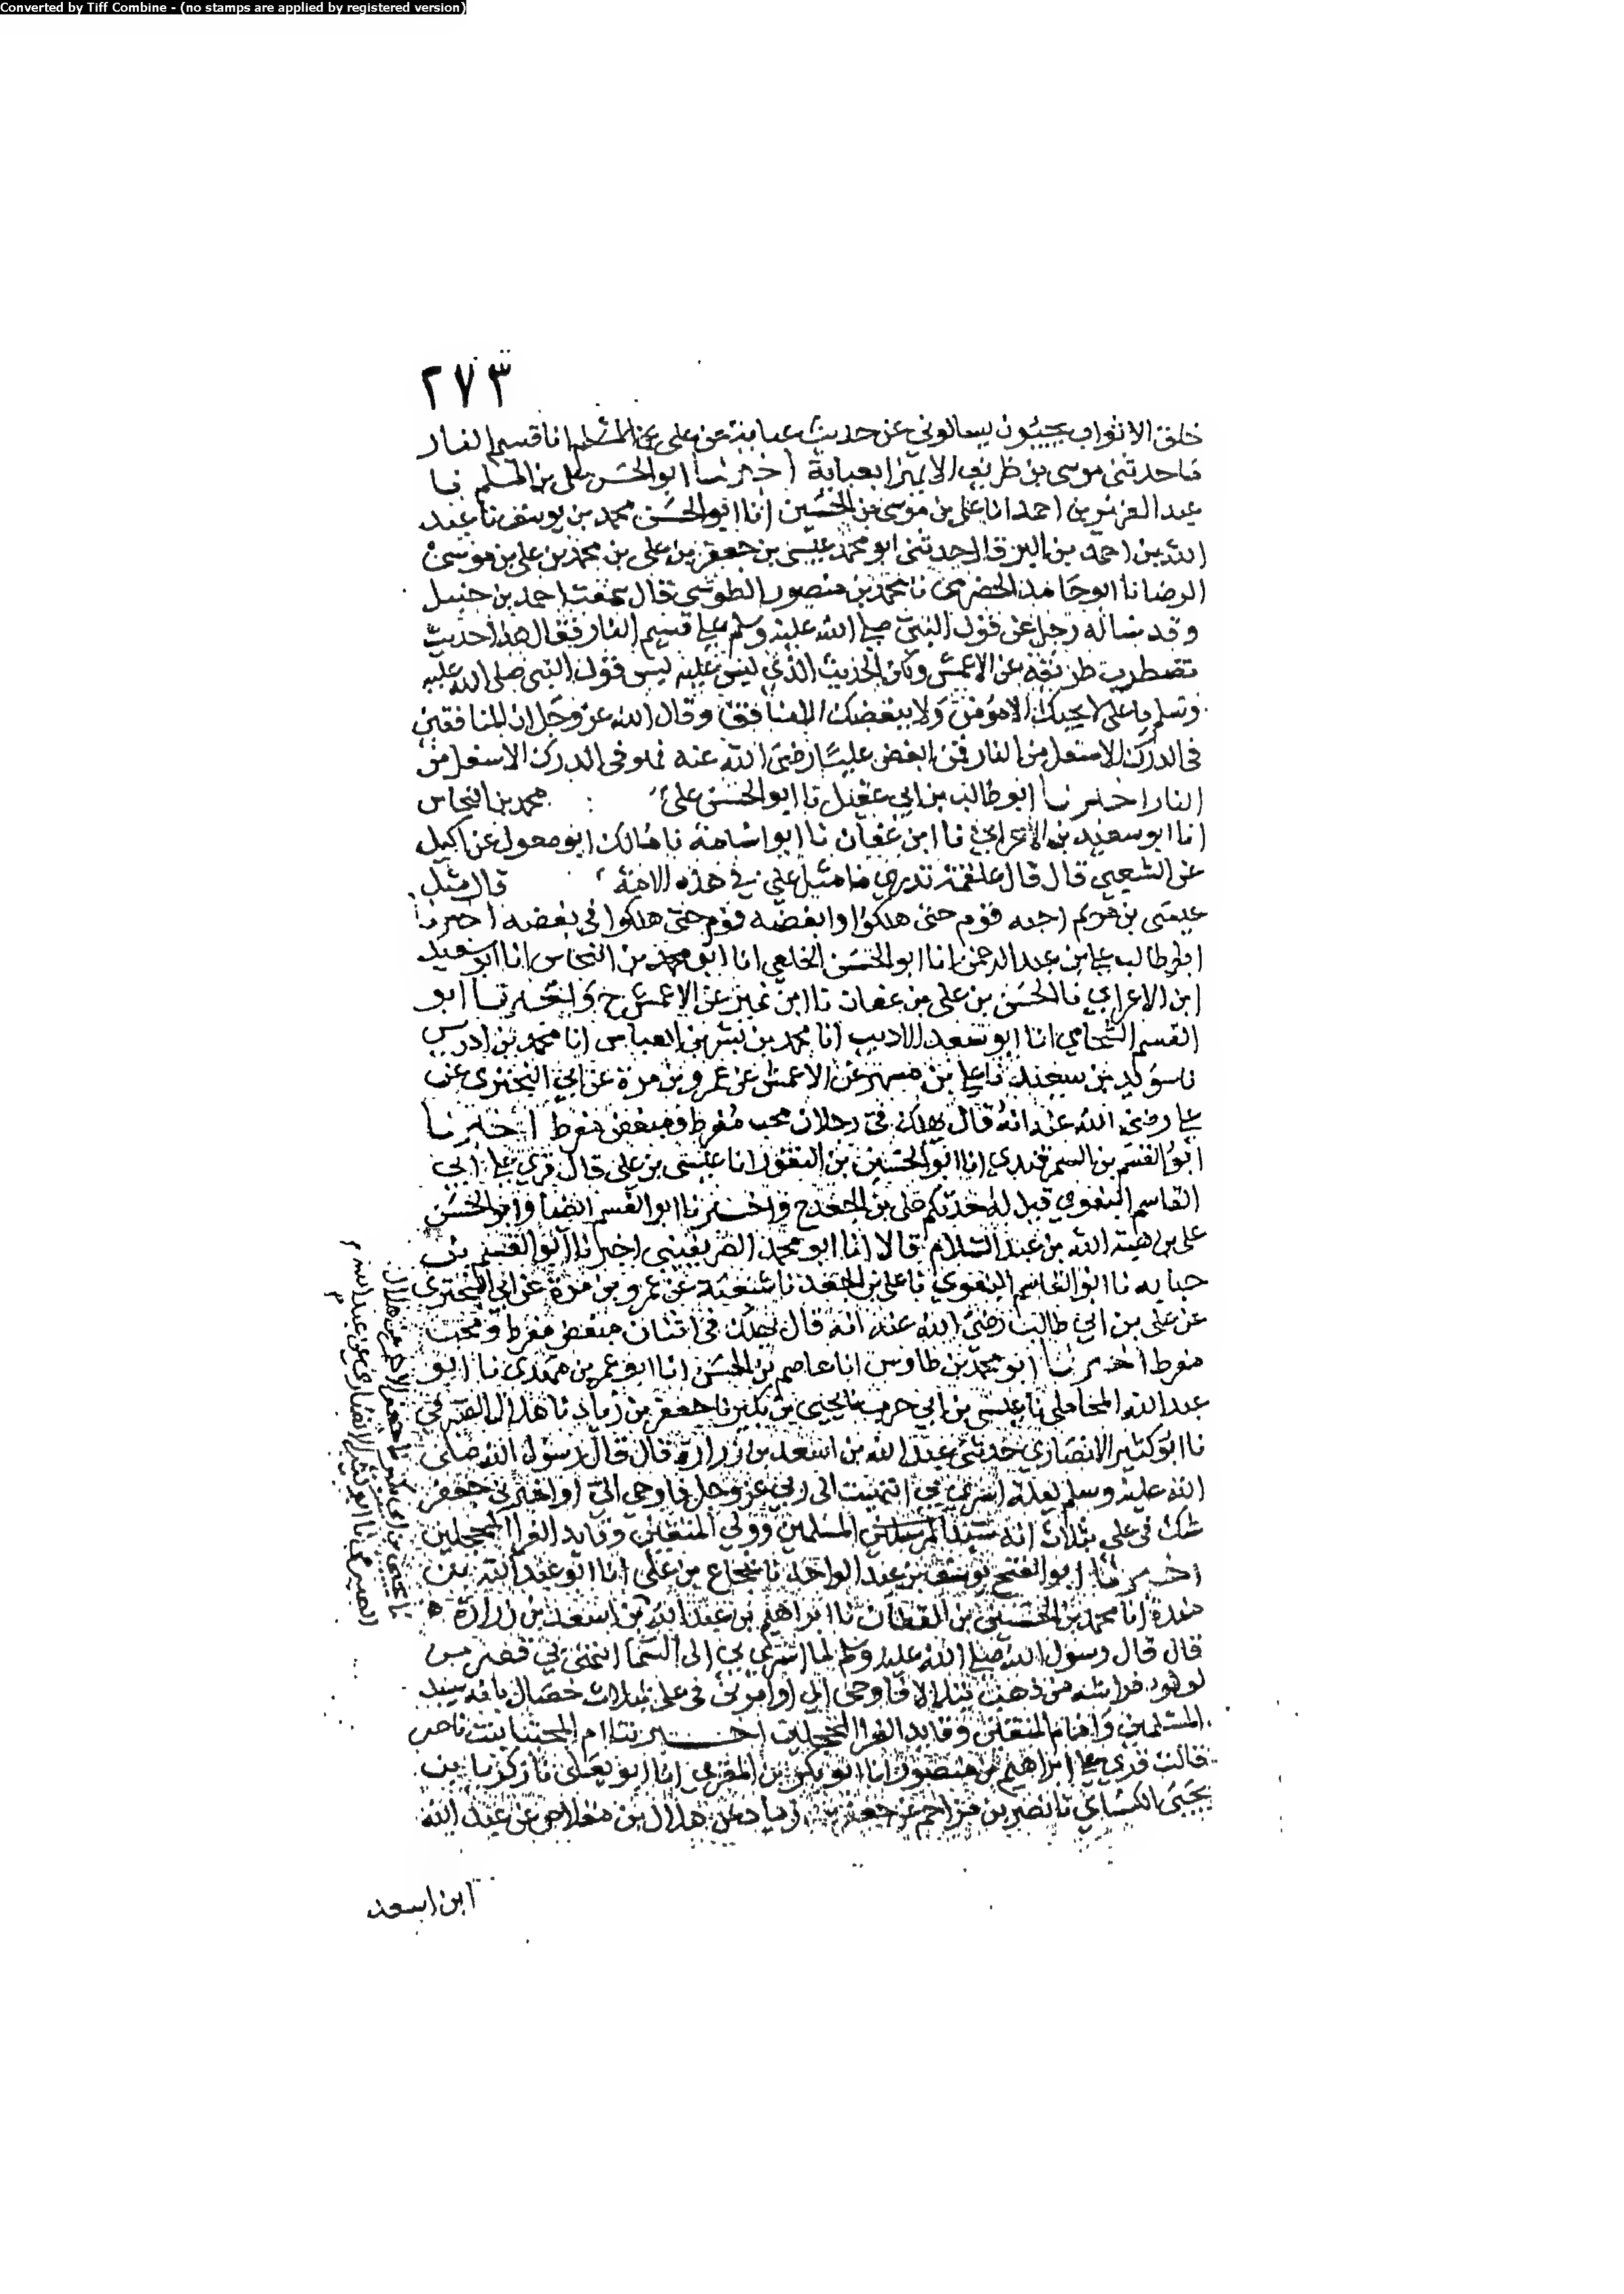 Converted by Tiff Combine - (no stamps are applied by registered version)
٢٧٣
خلق الاثواب يجيبون يسالوني عن حديث عباية عن علي انا قسيم النار
ما حدثني موسى بن ظريف الا ليهزا بعباية اخبرنا ابو الحسن علي بن المسلم نا
عبد العزيز بن احمد انا علي بن موسى بن الحسين انا ابو الحسن محمد بن يوسف نا عبد
الله بن احمد بن قال حدثني ابو محمد عيسى بن جعفر بن علي بن محمد بن علي بن موسى
الرضا نا ابو حامد الحضرمي نا محمد بن منصور الطوسي قال سمعت احمد بن حنبل
وقد ساله رجل عن قول النبي صلى الله عليه وسلم علي قسيم النار فقال هذا حديث
تضطرب طريقه عن الاعمش ولكن الحديث الذي ليس عليه لبس قول النبي صلى الله عليه
وسلم يا علي لا يحبك الا مؤمن ولا يبغضك الا منافق وقال الله عز وجل ان المنافقين
في الدرك الاسفل من النار فمن ابغض عليا رضي الله عنه فهو في الدرك الاسفل من
النار اخبرنا ابو طالب بن ابي عقيل نا ابو الحسن علي محمد بن النحاس
انا ابو سعيد بن الاعرابي نا ابن عفان نا ابو اسامة نا مالك ابو معول عن اكيل
عن الشعبي قال قال علقمة تدري ما مثل علي في هذه الامة قال مثل
عيسى بن مريم احبه قوم حتى هلكوا وابغضه قوم حتى هلكوا في بغضه اخبرنا
ابو طالب علي بن عبد الرحمن انا ابو الحسن الخلعي انا ابو محمد بن النحاس انا ابو سعيد
ابن الاعرابي نا الحسن بن علي بن عفان نا ابن نمير عن الاعمش ح واخبرنا ابو
القسم الشحامي انا ابو سعد الاديب انا محمد بن بشر بن العباس انا محمد بن ادريس
نا سويد بن سعيد نا علي بن مسهر عن الاعمش عن عمرو بن مرة عن ابي البختري عن
علي رضي الله عنه انه قال يهلك في رجلان محب مفرط ومبغض مفرط اخبرنا
ابو القسم بن السمرقندي انا ابو الحسين بن النقور انا عيسى بن علي قال قري على ابي
القاسم البغوي قيل له حدثكم علي بن الجعد ح واخبرنا ابو القسم ايضا وابو الحسن
علي بن هبة الله بن عبد السلام قالا انا ابو محمد الصريفيني اخبرنا ابو القسم بن
حبابه نا ابو القاسم البغوي نا علي بن الجعد نا شعبة عن عمرو بن مرة عن ابي البختري
عن علي بن ابي طالب رضي الله عنه انه قال يهلك في اثنان مبغض مفرط ومحب
مفرط اخبرنا ابو محمد بن طاوس انا عاصم بن الحسن انا ابو عمر بن مهدي نا ابو
عبد الله المحاملي نا عيسى بن ابي حرب نا يحيى بن بكير نا جعفر بن زياد نا هلال الصيرفي
نا ابو كثير الانصاري حدثني عبد الله بن اسعد بن زرارة قال قال رسول الله صلى
الله عليه وسلم ليلة اسري بي انتهيت الى ربي عز وجل فاوحى الي او اخبرني جعفر
شك في علي بثلاث انه سيد المسلمين وولي المتقين وقايد الغر المحجلين
اخبرنا ابو الفتح يوسف بن عبد الواحد نا شجاع بن علي انا ابو عبد الله بن
مندة انا محمد بن الحسين بن القطان نا ابراهيم بن عبد الله بن اسعد بن زرارة
قال قال رسول الله صلى الله عليه وسلم لما اسري بي الى السما انتهي بي قصر من
لولو فراشه من ذهب يتلالا فاوحى الي او امرني في علي بثلاث خصال بانه سيد
المسلمين وامام المتقين وقايد الغر المحجلين اخبرتنا ام المجتبا بنت ناصر
قالت قري على ابراهيم بن منصور انا ابو بكر بن المقري انا ابو يعلى نا زكريا بن
يحيى الكسائي نا نصر بن مزاحم عن جعفر بن زياد عن هلال بن مقلاص عن عبد الله
ابن اسعد
نا يحيى بن ابي بكير نا جعفر الاحمر عن هلال
الصيرفي نا ابو كثير الانصاري عن عبد الله